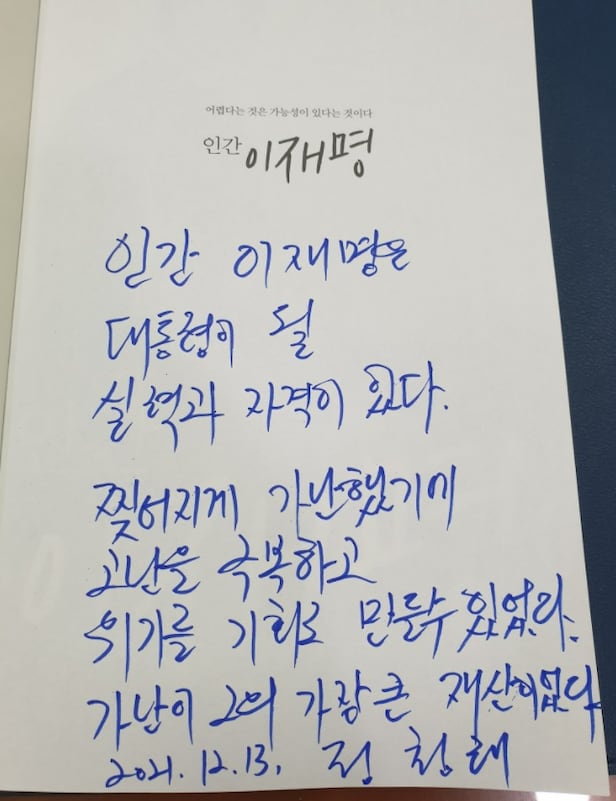 어렵다는 것은 가능성이 있다는 것이다
인간 이재명
인간 이재명은
대통령이 될
실력과 자격이 있다.
찢어지게 가난했기에
고난을 극복하고
위기를 기회로 만들수 있었다.
가난이 그의 가장 큰 재산이었다
2021. 12. 13. 정청래